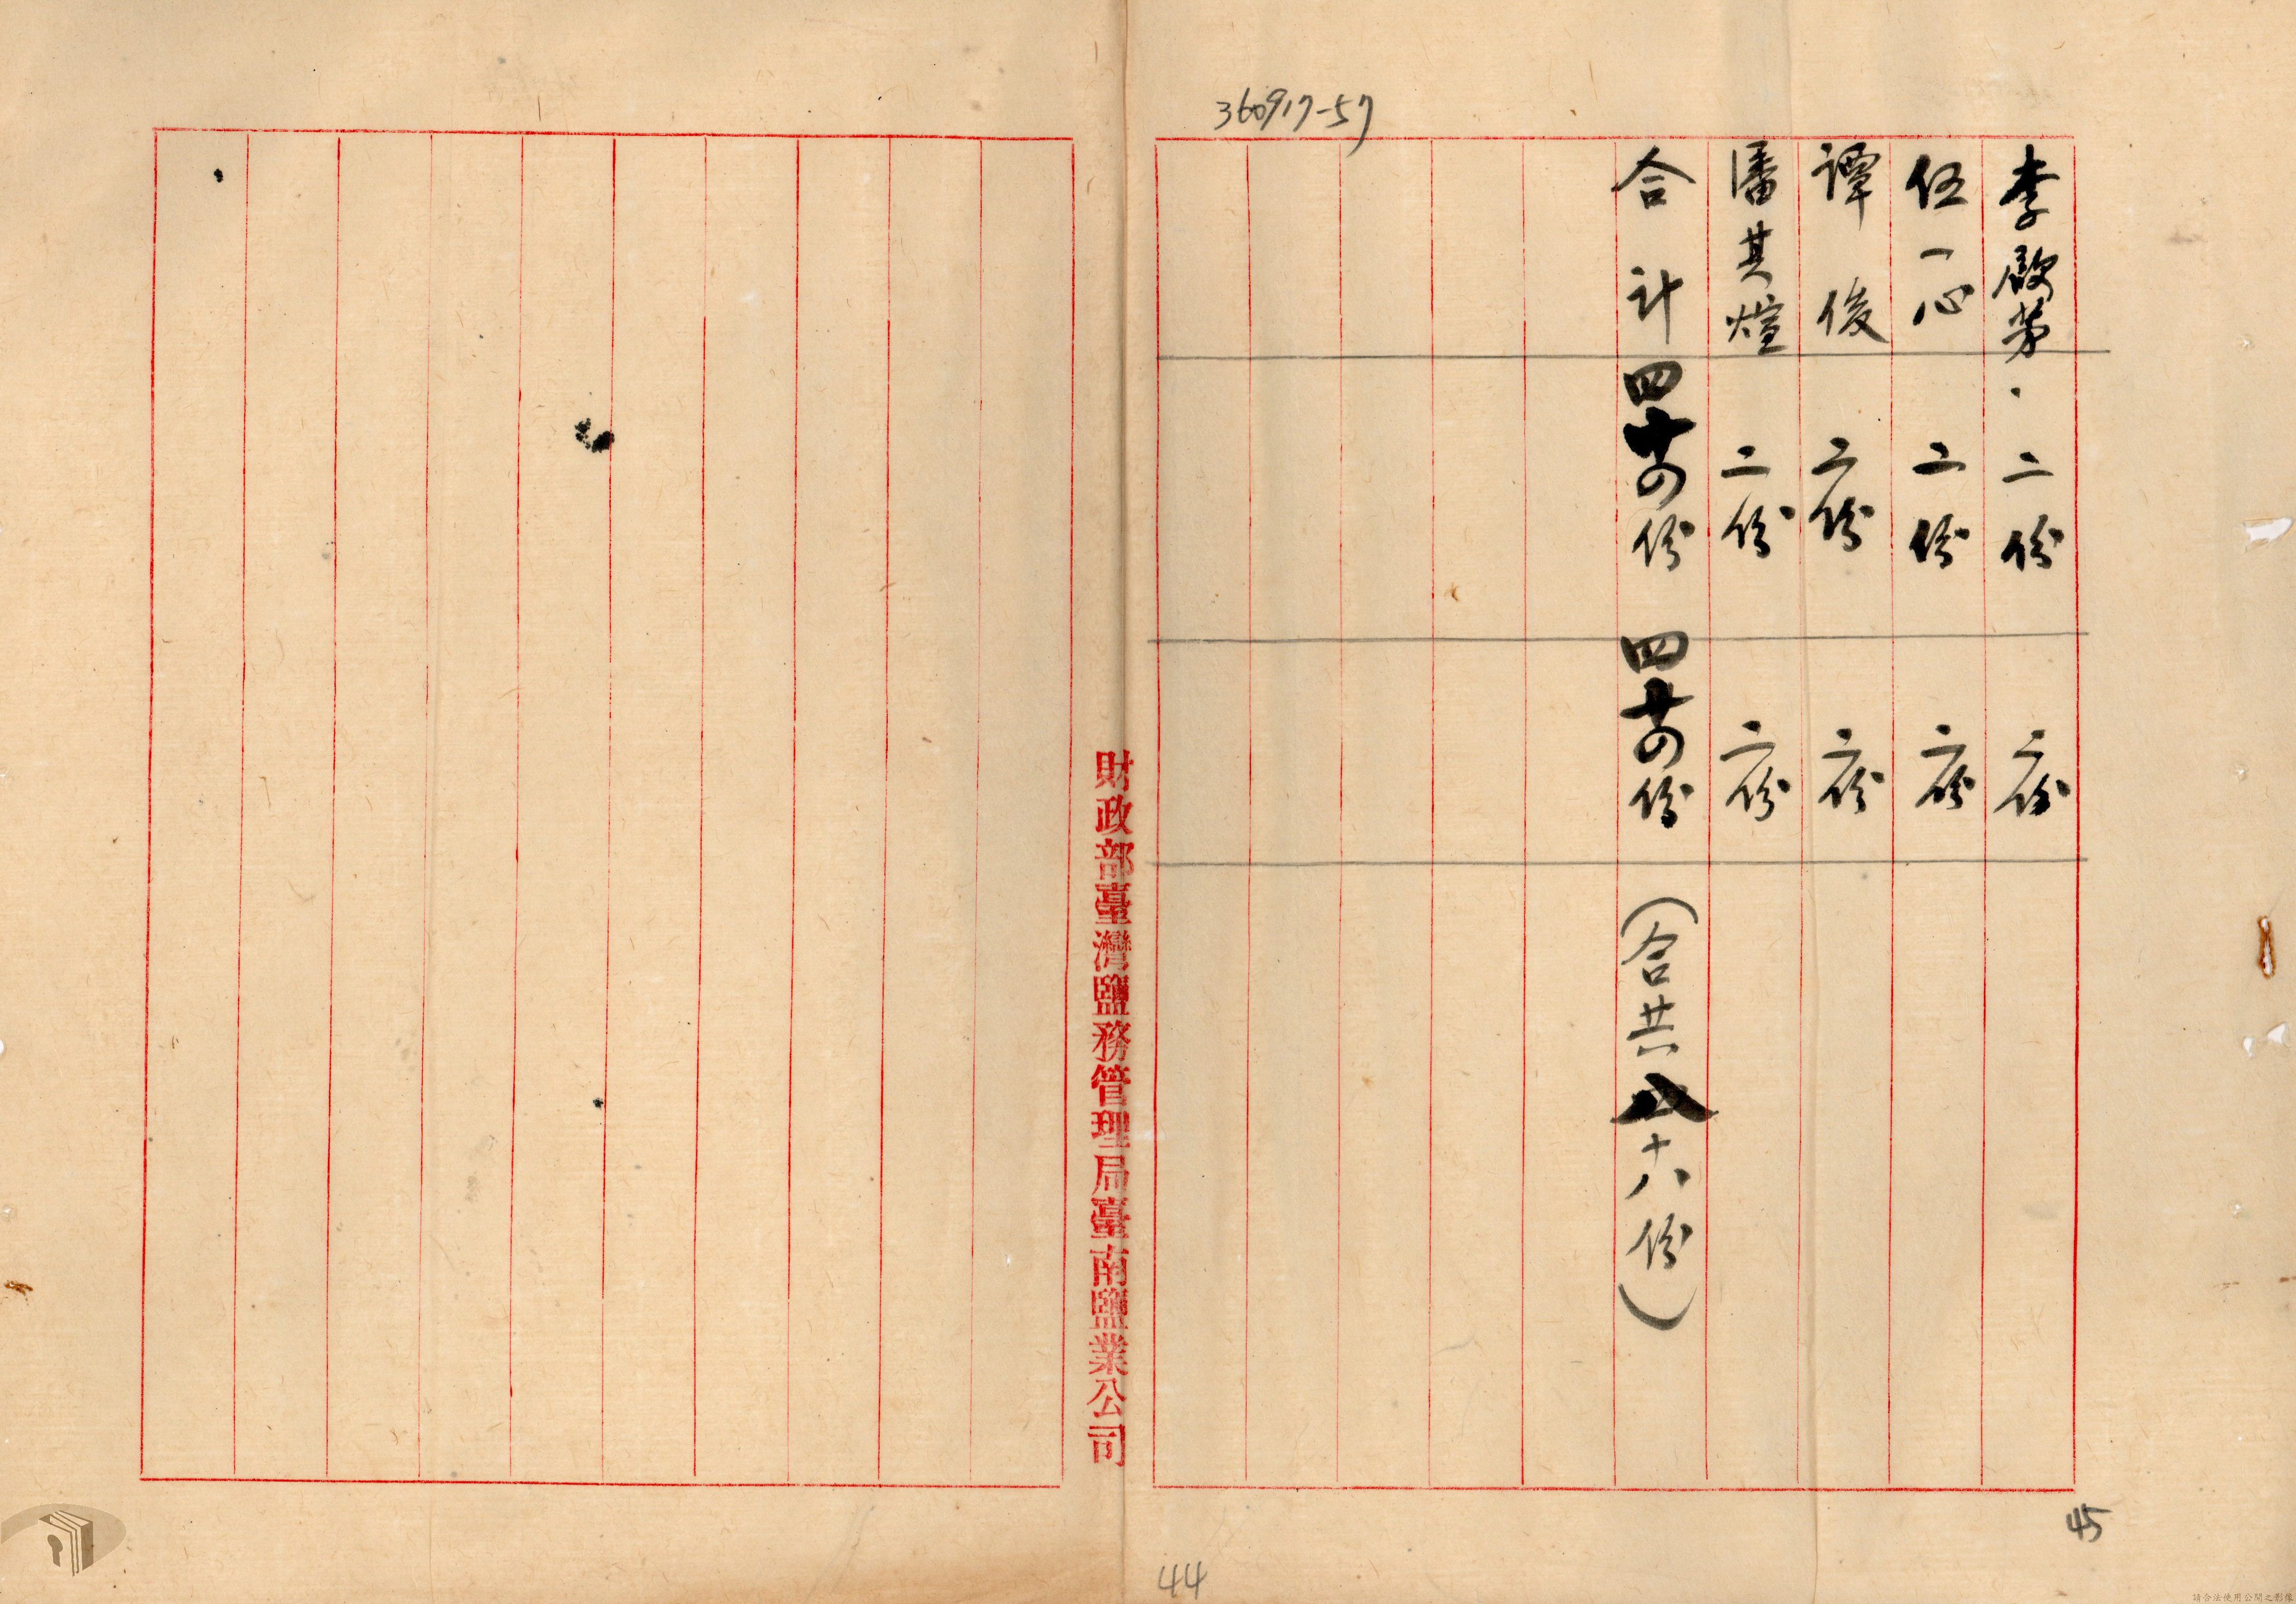 360917-57
李啟第 二份 二份
伍一心 二份 二份
譚俊 二份 二份
潘其煊 二份 二份
合計 四十四份 四十四份 (合共八十八份)
財政部臺灣鹽務管理局臺南鹽業公司
45
44
請合法使用公開之影像